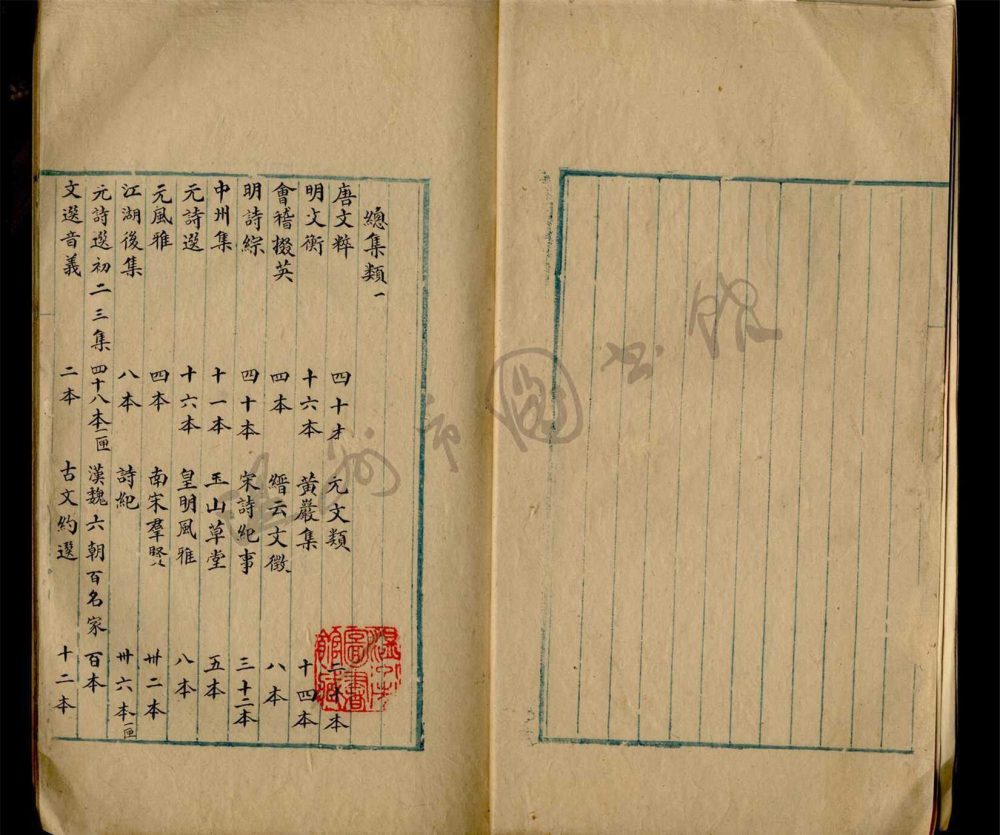 總集類一
唐文粹 四十本 元文類 二十本
明文衡 十六本 黃巖集 十四本
會稽掇英 四本 縉云文徵 八本
明詩綜 四十本 宋詩紀事 三十二本
中州集 十一本 玉山草堂 五本
元詩選 十六本 皇明風雅 八本
元風雅 四本 南宋羣賢 卅二本
江湖後集 八本 詩紀 卅六本一匣
元詩選初二三集 四十八本一匣 漢魏六朝百名家 百本
文選音義 二本 古文約選 十二本
溫州市圖書館藏
溫州市圖書館